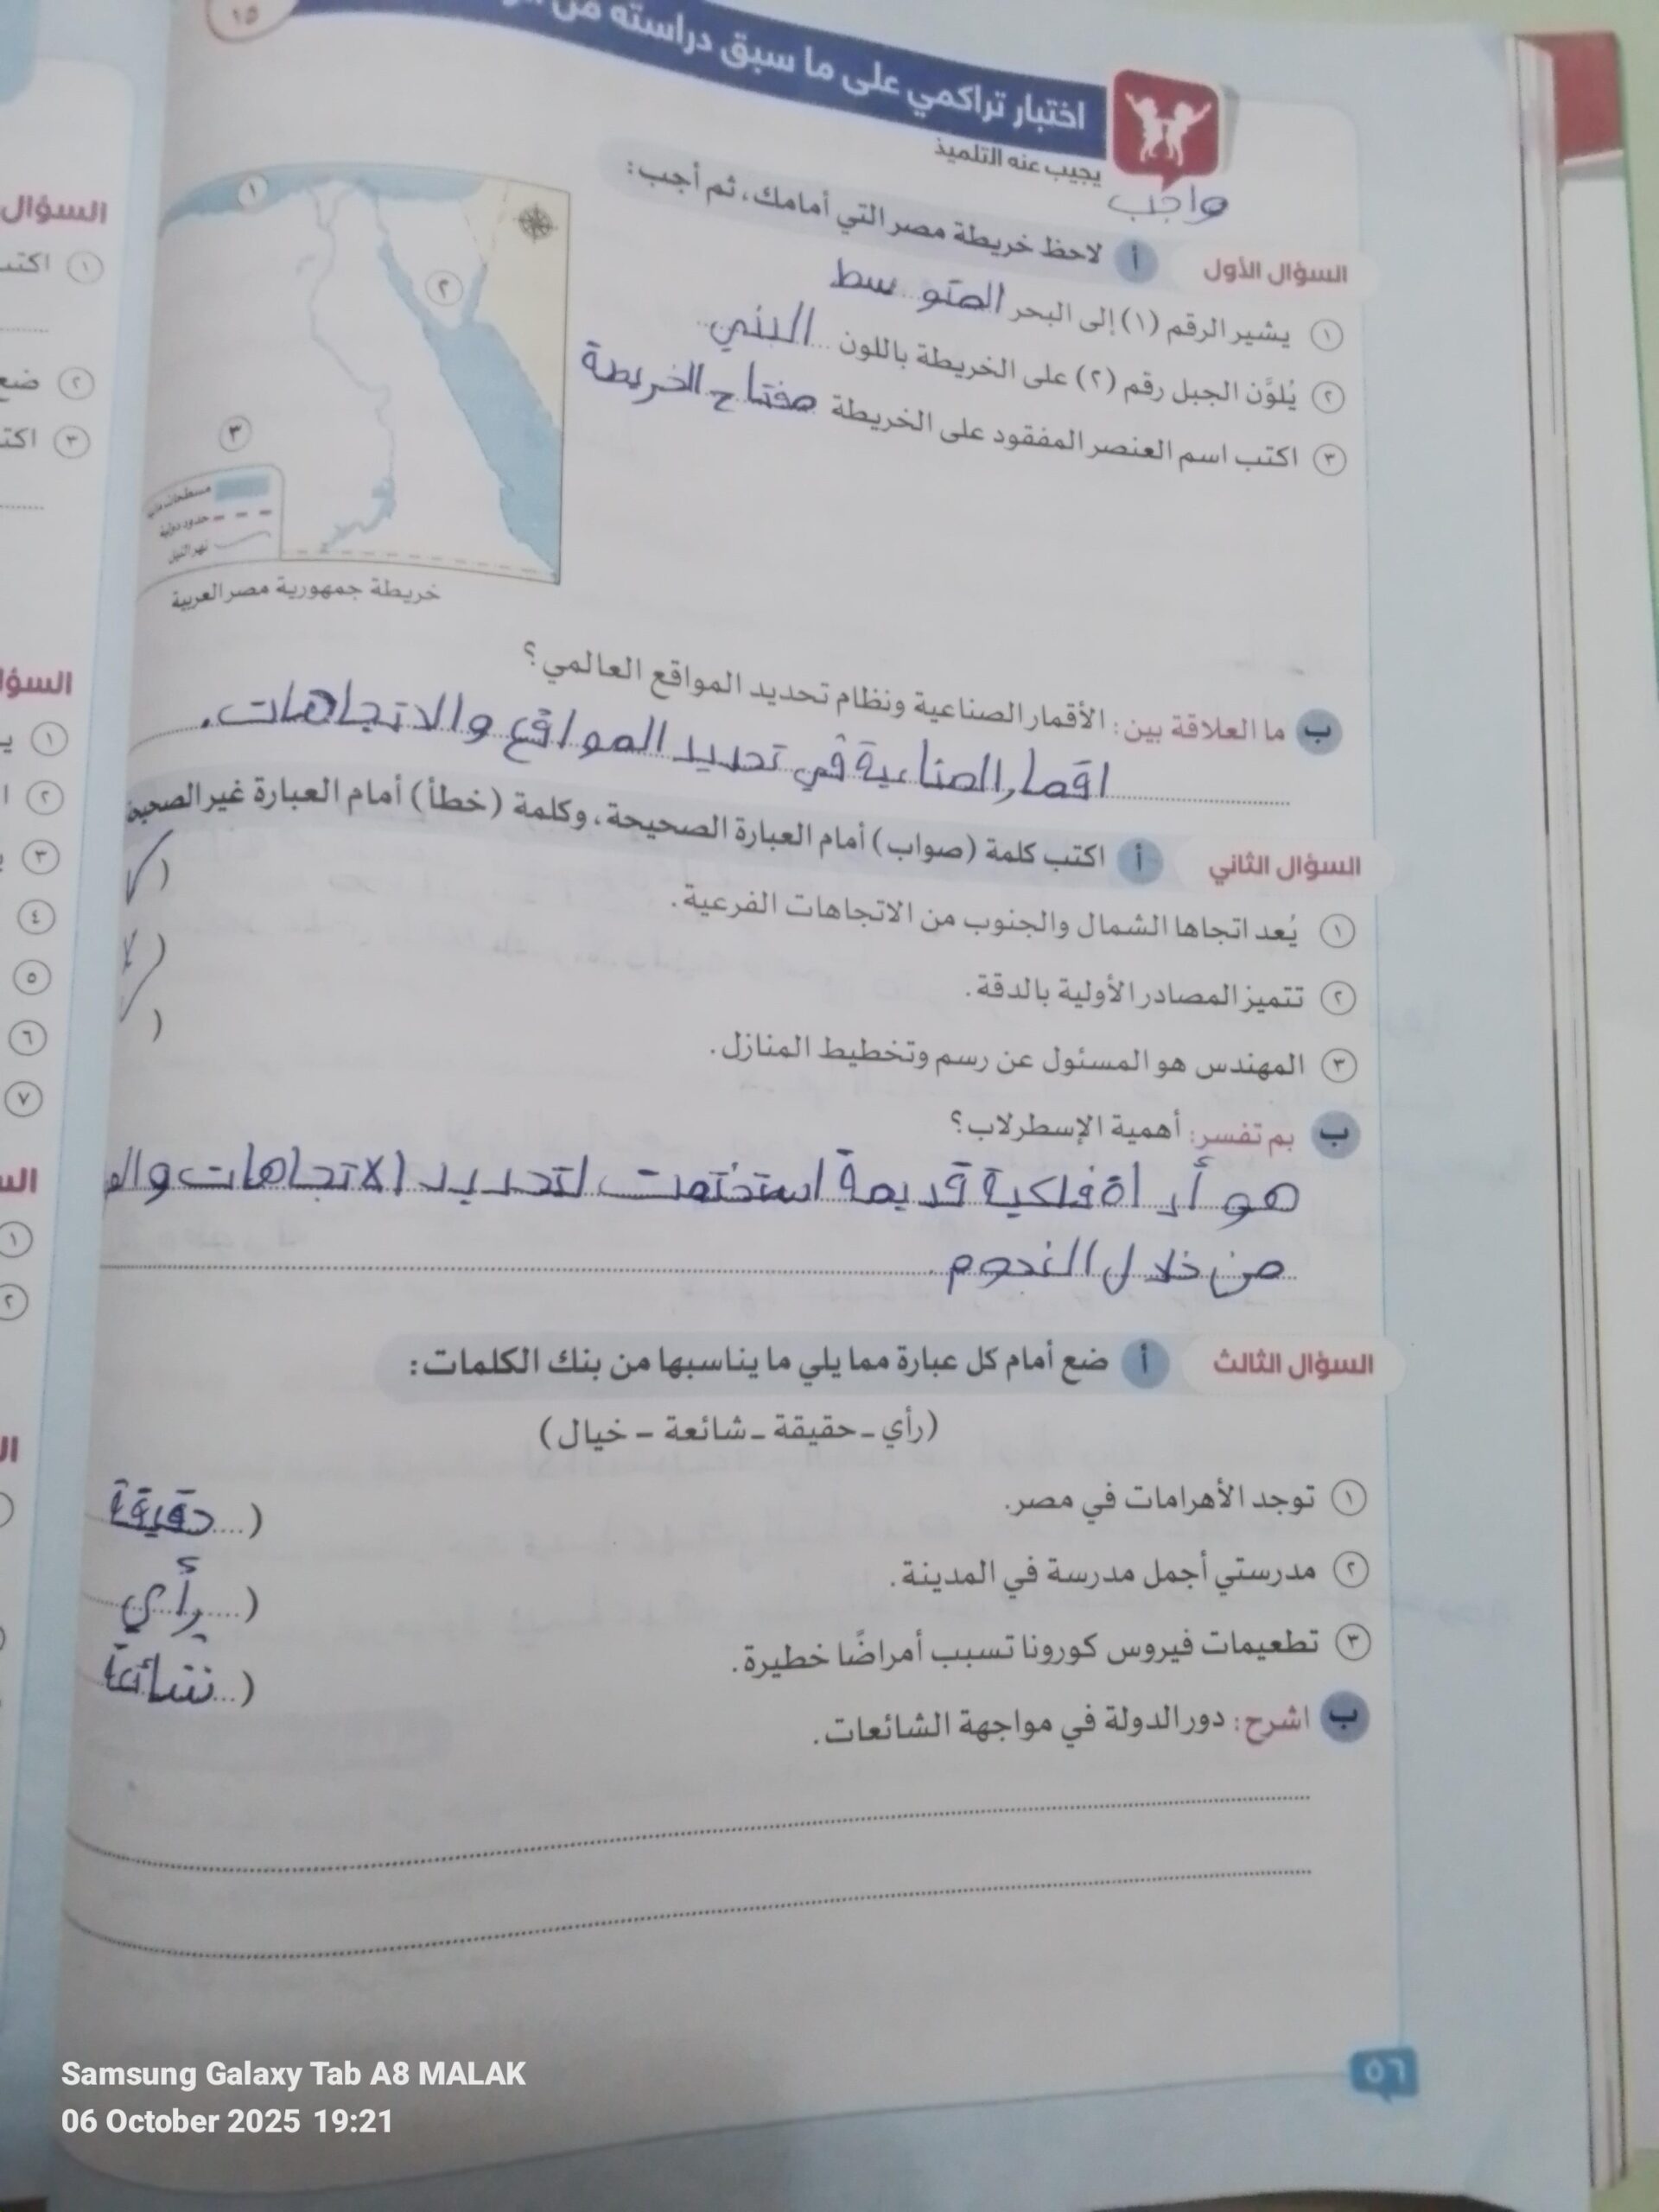 ١٥
اختبار تراكمي على ما سبق دراسته من
يجيب عنه التلميذ
واجب
السؤال الأول أ لاحظ خريطة مصر التي أمامك، ثم أجب:
١ يشير الرقم (١) إلى البحر المتوسط
٢ يُلوَّن الجبل رقم (٢) على الخريطة باللون .. البني
٣ اكتب اسم العنصر المفقود على الخريطة مفتاح الخريطة
١
٢
٣
مسطحات مائية
حدود دولية
نهر النيل
خريطة جمهورية مصر العربية
ب ما العلاقة بين: الأقمار الصناعية ونظام تحديد المواقع العالمي؟
اقمار الصناعية في تحديد المواقع والاتجاهات.
السؤال الثاني أ اكتب كلمة (صواب) أمام العبارة الصحيحة، وكلمة (خطأ) أمام العبارة غير الصحيحة
١ يُعد اتجاها الشمال والجنوب من الاتجاهات الفرعية. (
٢ تتميز المصادر الأولية بالدقة. (
٣ المهندس هو المسئول عن رسم وتخطيط المنازل. (
ب بم تفسر: أهمية الإسطرلاب؟
هو أداة فلكية قديمة استخدمت لتحديد الاتجاهات وال
من خلال النجوم
السؤال الثالث أ ضع أمام كل عبارة مما يلي ما يناسبها من بنك الكلمات:
(رأي - حقيقة - شائعة - خيال)
١ توجد الأهرامات في مصر. (... حقيقة
٢ مدرستي أجمل مدرسة في المدينة. (... رأي
٣ تطعيمات فيروس كورونا تسبب أمراضًا خطيرة. (.. شائعة
ب اشرح: دور الدولة في مواجهة الشائعات.
٥٦
السؤال
١ اكتب
٢ ضع
٣
السؤا
١
٢
٣
٤
٥
٦
٧
١
٢
Samsung Galaxy Tab A8 MALAK
06 October 2025 19:21